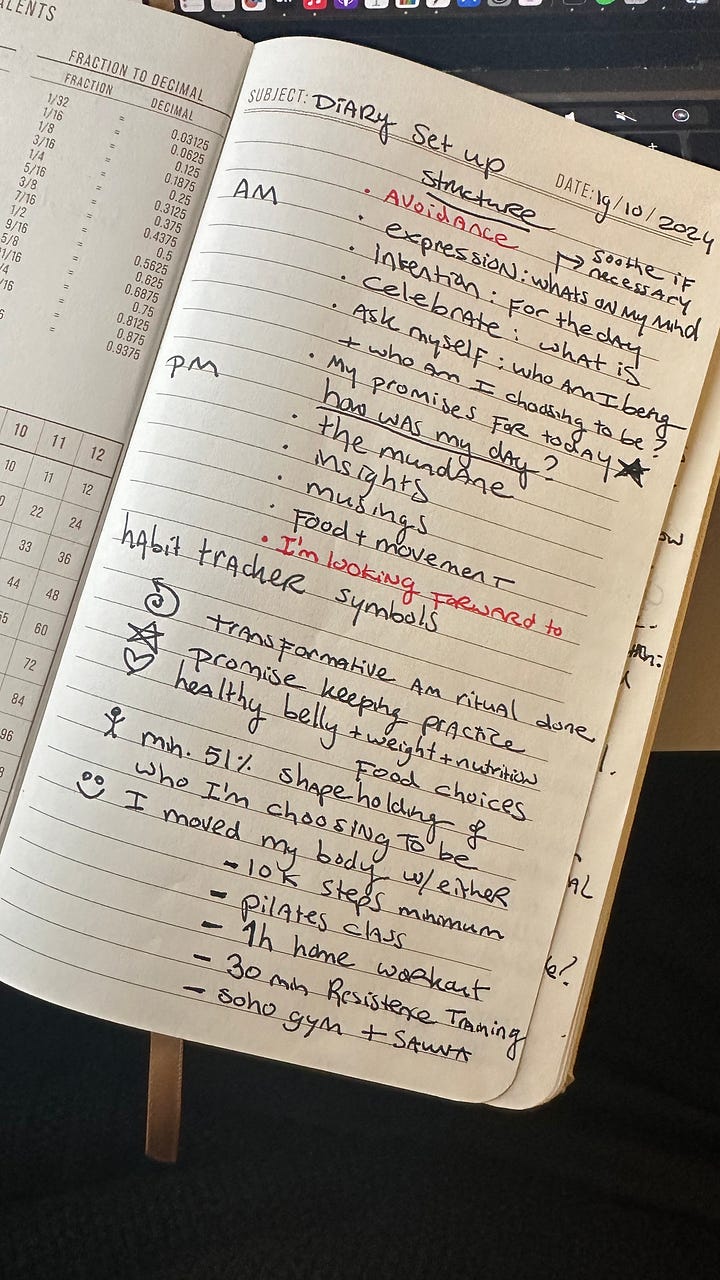 ALENTS
FRACTION TO DECIMAL
FRACTION DECIMAL
1/32 = 0.03125
1/16 = 0.0625
1/8 = 0.125
3/16 = 0.1875
1/4 = 0.25
5/16 = 0.3125
3/8 = 0.375
7/16 = 0.4375
1/2 = 0.5
9/16 = 0.5625
5/8 = 0.625
11/16 = 0.6875
3/4 = 0.75
= 0.8125
= 0.875
= 0.9375
10 11 12
10 11 12
22 24
33 36
44 48
55 60
72
84
96
SUBJECT: DiARy Set up
DATE: 19/10/2024
Structure
AM
• Avoidance
• expression: whats on my mind
↱ soothe if necessary
• intention: for the day
• celebrate: what is
• Ask myself: who Am I being
+ who am I choosing to be?
• My promises for today ★
PM
how was my day?
• the mundane
• insights
• musings
• Food + movement
• I'm looking forward to
habit tracker symbols
transformative AM ritual done
☆ promise keeping practice
♡ healthy belly + weight + nutrition
Food choices
min. 51% shapeholding of
who I'm choosing to be
I moved my body w/ either
- 10K steps minimum
- pilates class
- 1h home workout
- 30 min Resistence Training
- soho gym + SAUNA